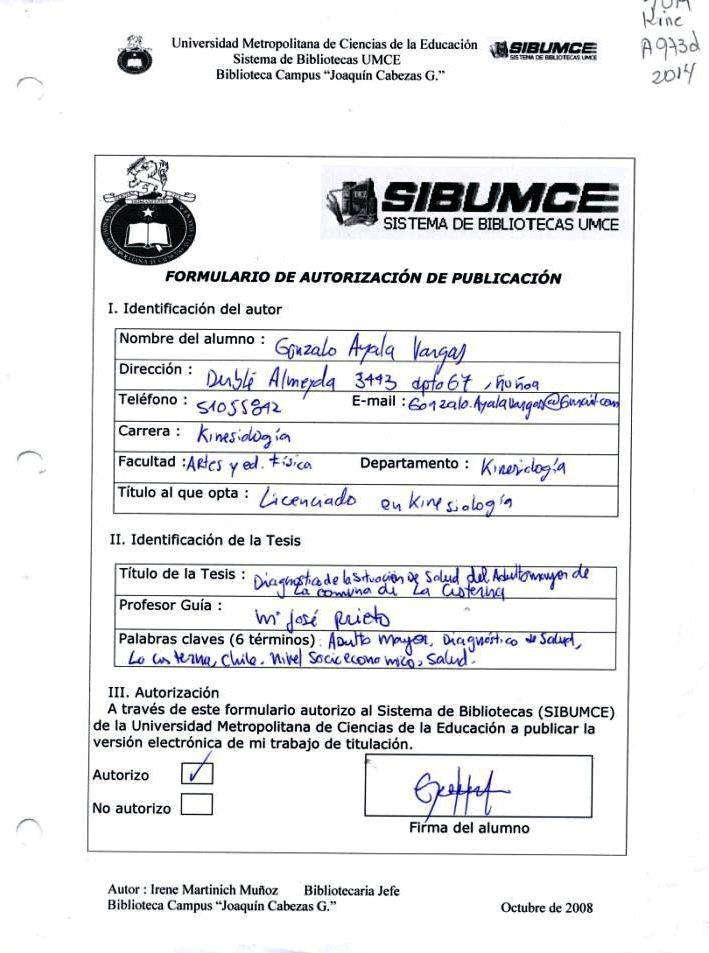 Kine
A973d
2014
Universidad Metropolitana de Ciencias de la Educación
Sistema de Bibliotecas UMCE
Biblioteca Campus “Joaquín Cabezas G.”
SIBUMCE
SISTEMA DE BIBLIOTECAS UMCE
SIBUMCE
SISTEMA DE BIBLIOTECAS UMCE
FORMULARIO DE AUTORIZACIÓN DE PUBLICACIÓN
I. Identificación del autor
Nombre del alumno : Gonzalo Ayala Vargas
Dirección : Dublé Almeyda 3493 dpto 67, Ñuñoa
Teléfono : 51055842 E-mail : Gonzalo.AyalaVargas@Gmail.com
Carrera : Kinesiología
Facultad : Artes y ed. Física Departamento : Kinesiología
Título al que opta : Licenciado en Kinesiología
II. Identificación de la Tesis
Título de la Tesis : Diagnóstico de la Situación de Salud del Adulto mayor de
La comuna de La Cisterna
Profesor Guía : Mª José Prieto
Palabras claves (6 términos) : Adulto Mayor, Diagnóstico de Salud,
La cisterna, Chile. Nivel Socioeconómico, Salud.
III. Autorización
A través de este formulario autorizo al Sistema de Bibliotecas (SIBUMCE)
de la Universidad Metropolitana de Ciencias de la Educación a publicar la
versión electrónica de mi trabajo de titulación.
Autorizo ✓
No autorizo
Firma del alumno
Autor : Irene Martinich Muñoz Bibliotecaria Jefe
Biblioteca Campus “Joaquín Cabezas G.” Octubre de 2008